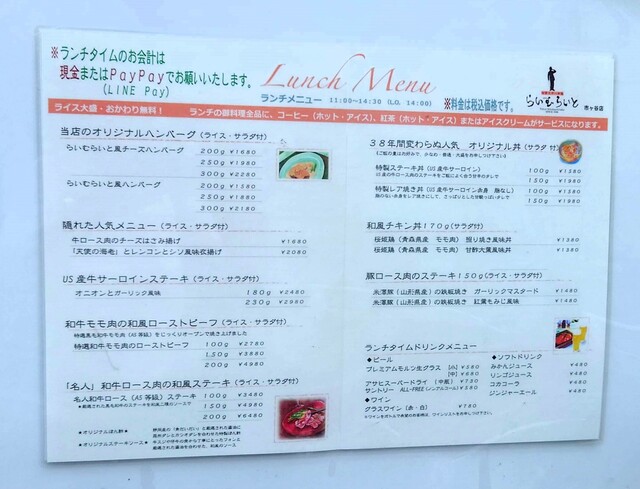 ※ランチタイムのお会計は
現金またはPayPayでお願いいたします。
(LINE Pay)
Lunch Menu
ランチメニュー 11:00~14:30 (L.O. 14:00)
※料金は税込価格です。
らいむらいと 市ヶ谷店
ライス大盛・おかわり無料! ランチの御料理全品に、コーヒー(ホット・アイス)、紅茶(ホット・アイス)またはアイスクリームがサービスになります。
当店のオリジナルハンバーグ (ライス・サラダ付)
らいむらいと風チーズハンバーグ 200g ¥1680
250g ¥1980
300g ¥2280
らいむらいと風ハンバーグ 200g ¥1580
250g ¥1880
300g ¥2180
隠れた人気メニュー (ライス・サラダ付)
牛ロース肉のチーズはさみ揚げ ¥1680
「天使の海老」とレンコンとシソ風味衣揚げ ¥2080
US産牛サーロインステーキ (ライス・サラダ付)
オニオンとガーリック風味 180g ¥2480
230g ¥2980
和牛モモ肉の和風ローストビーフ (ライス・サラダ付)
特選黒毛和牛モモ肉(A5等級)をじっくりオーブンで焼き上げました
特選和牛モモ肉のローストビーフ 100g ¥2780
150g ¥3880
200g ¥4980
「名人」和牛ロース肉の和風ステーキ (ライス・サラダ付)
名人和牛ロース (A5等級) ステーキ 100g ¥3480
150g ¥4980
200g ¥6480
★オリジナルぽん酢★
★オリジナルステーキソース★
38年間変わらぬ人気 オリジナル丼 (サラダ付)
特製ステーキ丼 (US産牛サーロイン) 100g ¥1380
150g ¥1980
特製レア焼き丼 100g ¥1380
150g ¥1980
和風チキン丼170g (サラダ付)
桜姫鶏 (青森県産 モモ肉) 照り焼き風味丼 ¥1380
桜姫鶏 (青森県産 モモ肉) 甘酢大葉風味丼 ¥1380
豚ロース肉のステーキ150g (ライス・サラダ付)
米澤豚 (山形県産) の鉄板焼き ガーリックマスタード ¥1480
米澤豚 (山形県産) の鉄板焼き 紅葉もみじ風味 ¥1480
ランチタイムドリンクメニュー
◆ビール
プレミアムモルツ生グラス [小] ¥380
[中] ¥680
アサヒスーパードライ [中瓶] ¥730
サントリー ALL-FREE (ノンアルコール) ¥380
◆ワイン
グラスワイン (赤・白) ¥780
◆ソフトドリンク
みかんジュース ¥480
リンゴジュース ¥480
コカコーラ ¥480
ジンジャーエール ¥480